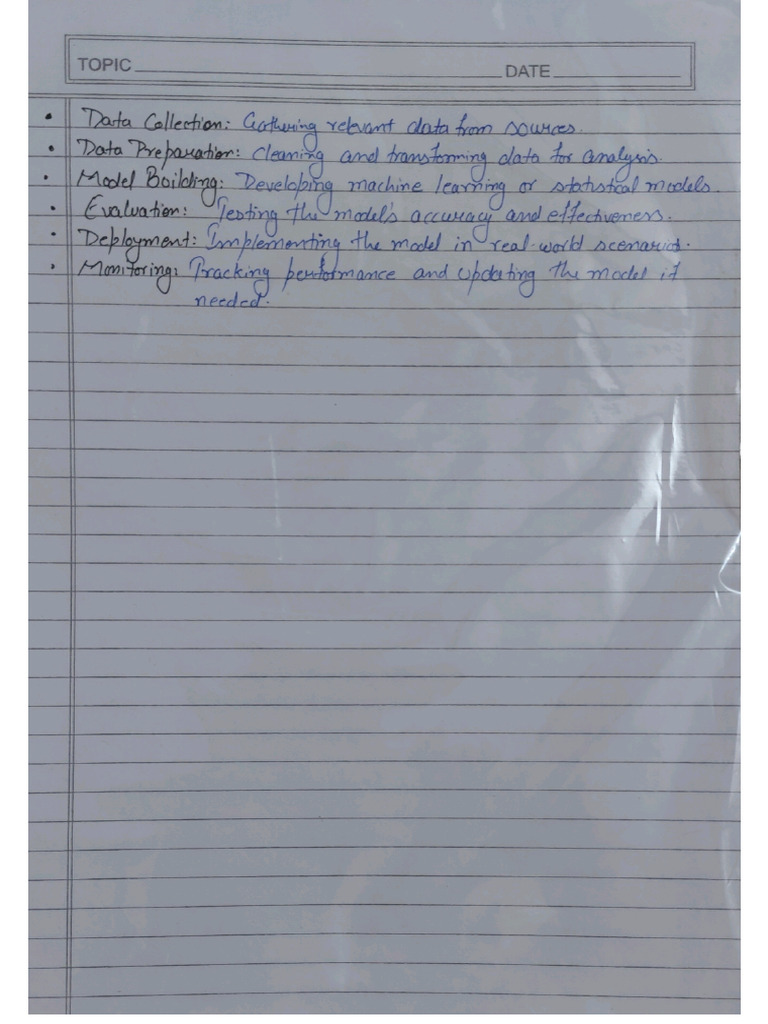 TOPIC DATE
• Data Collection: Gathering relevant data from sources.
• Data Preparation: Cleaning and transforming data for analysis.
• Model Building: Developing machine learning or statistical models.
• Evaluation: Testing the model's accuracy and effectiveness.
• Deployment: Implementing the model in real-world scenarios.
• Monitoring: Tracking performance and updating the model if
needed.